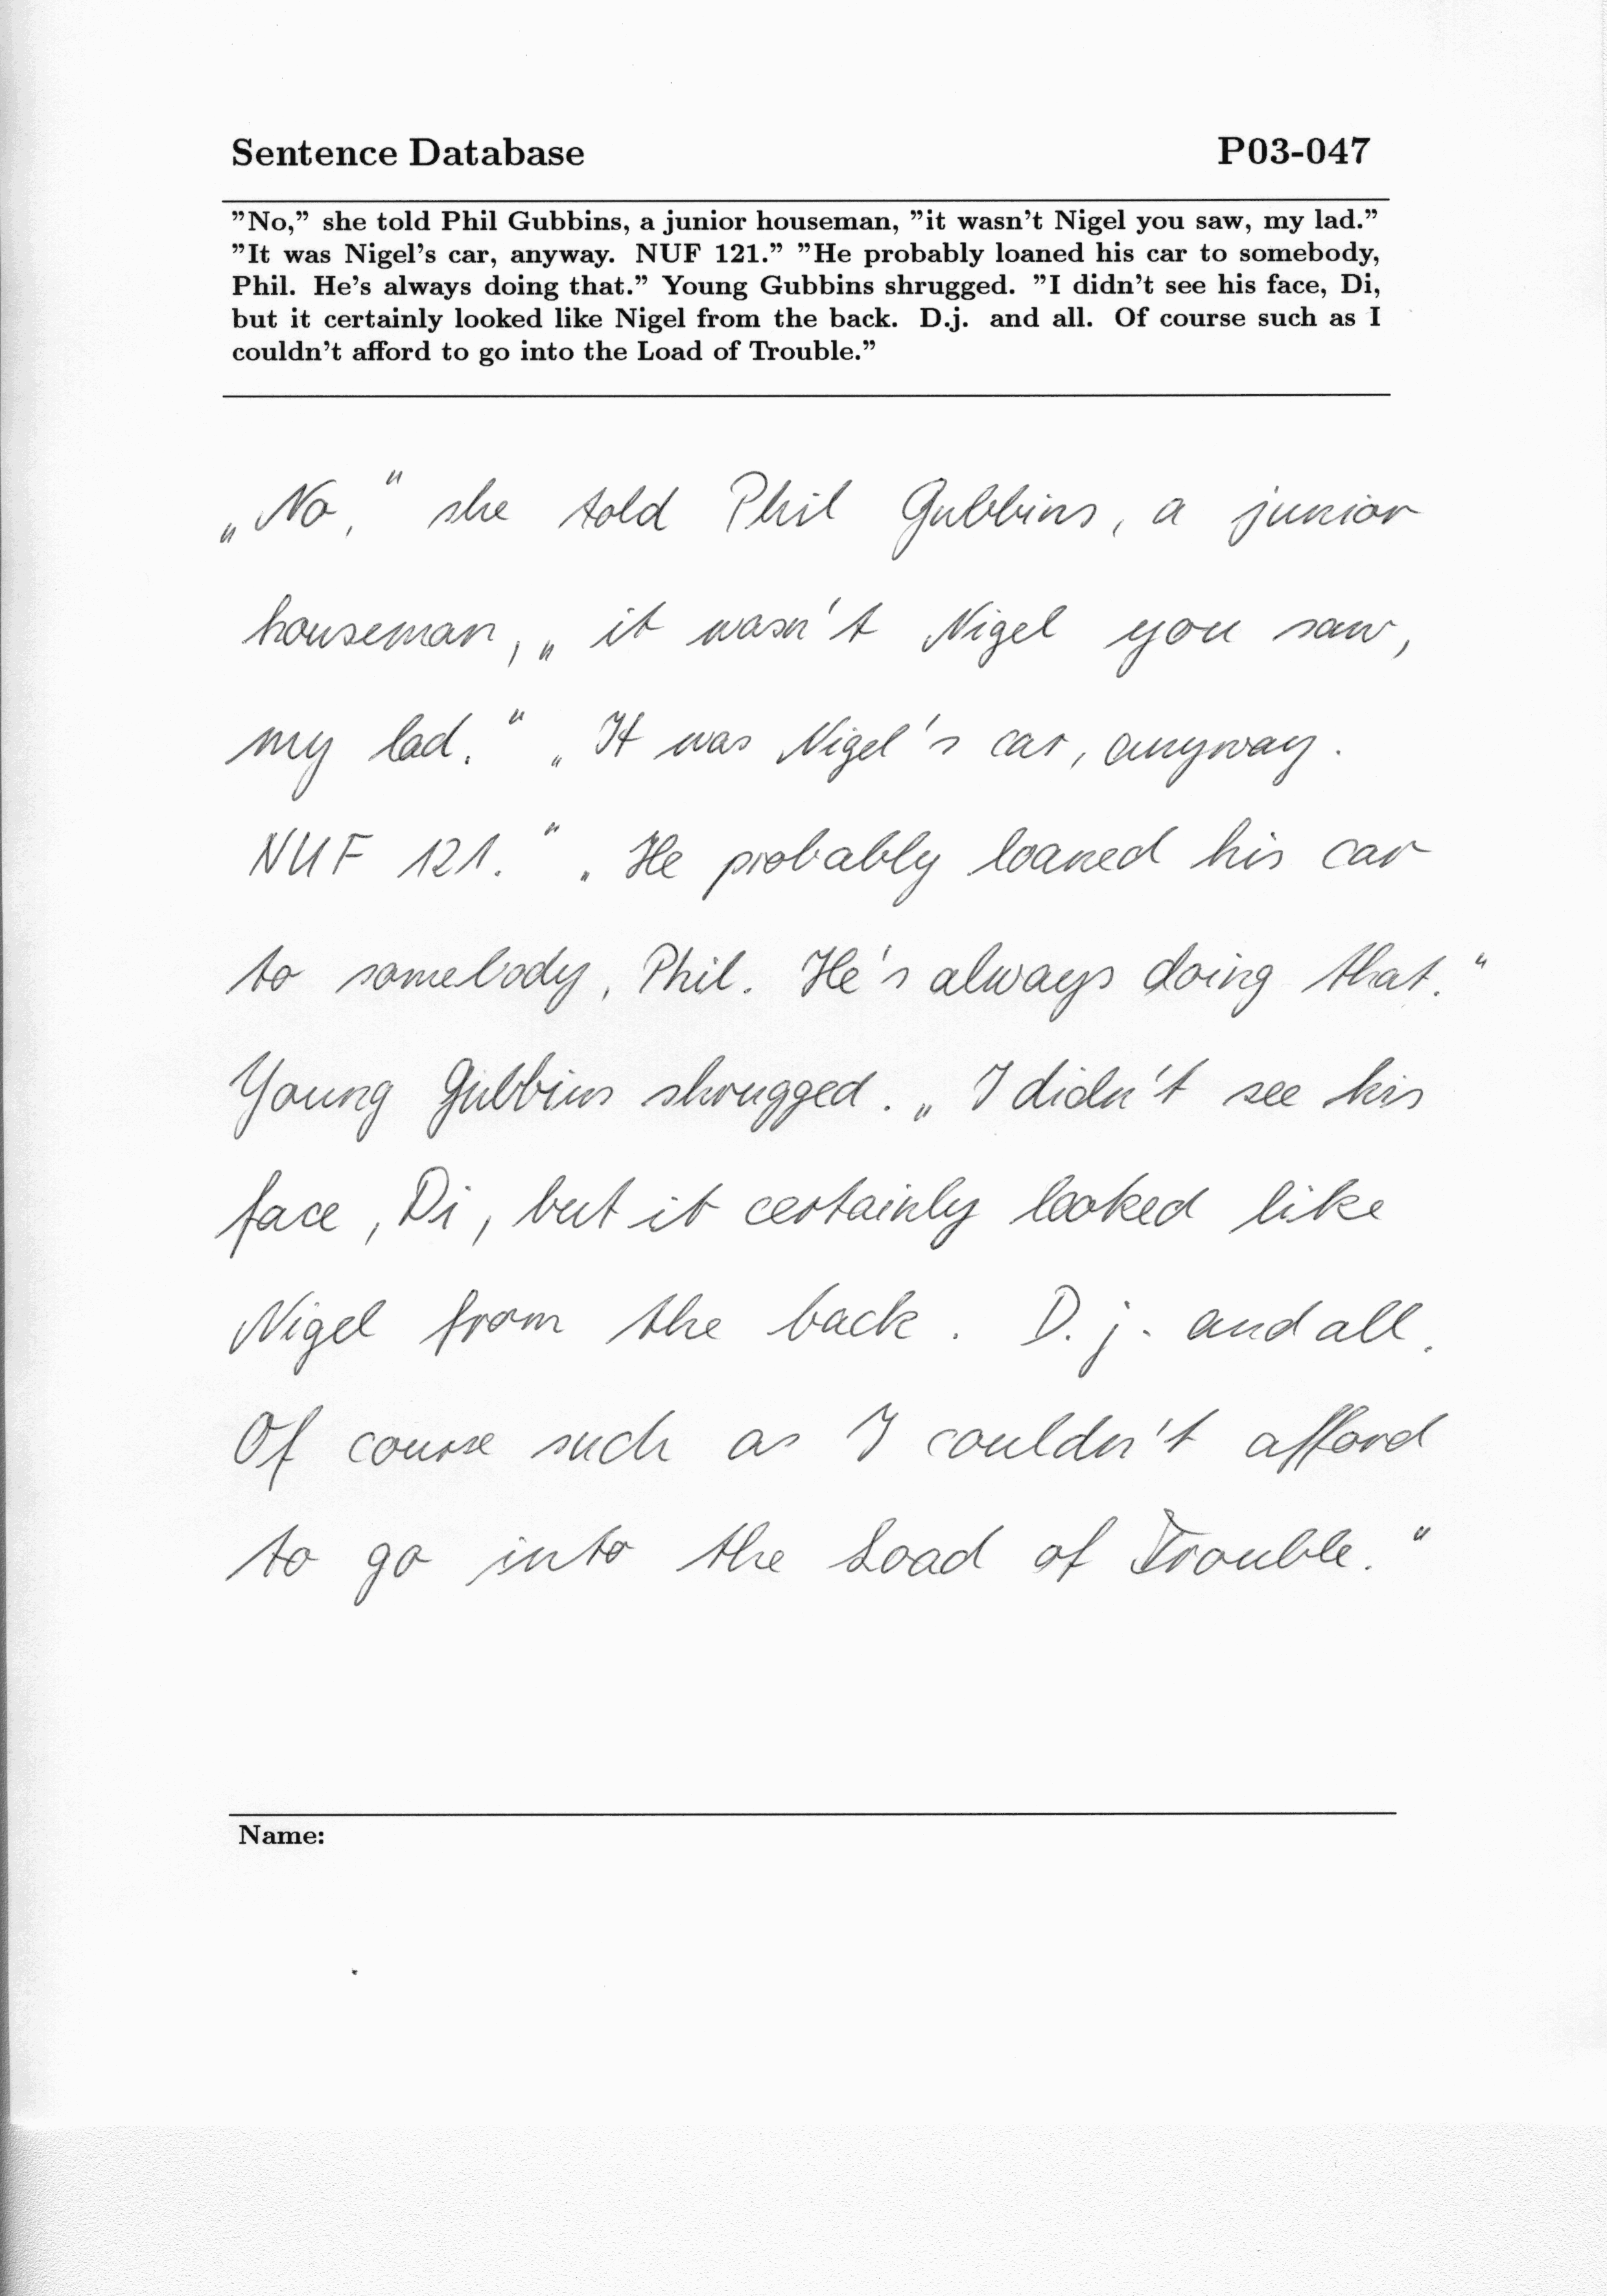 Sentence Database P03-047
”No,” she told Phil Gubbins, a junior houseman, ”it wasn’t Nigel you saw, my lad.”
”It was Nigel’s car, anyway. NUF 121.” ”He probably loaned his car to somebody,
Phil. He’s always doing that.” Young Gubbins shrugged. ”I didn’t see his face, Di,
but it certainly looked like Nigel from the back. D.j. and all. Of course such as I
couldn’t afford to go into the Load of Trouble.”
„No,“ she told Phil Gubbins, a junior
houseman, „it wasn't Nigel you saw,
my lad.“ „It was Nigel's car, anyway.
NUF 121.“ „He probably loaned his car
to somebody, Phil. He's always doing that.“
Young Gubbins shrugged. „I didn't see his
face, Di, but it certainly looked like
Nigel from the back. D.j. and all.
Of course such as I couldn't afford
to go into the Load of Trouble.“
Name: